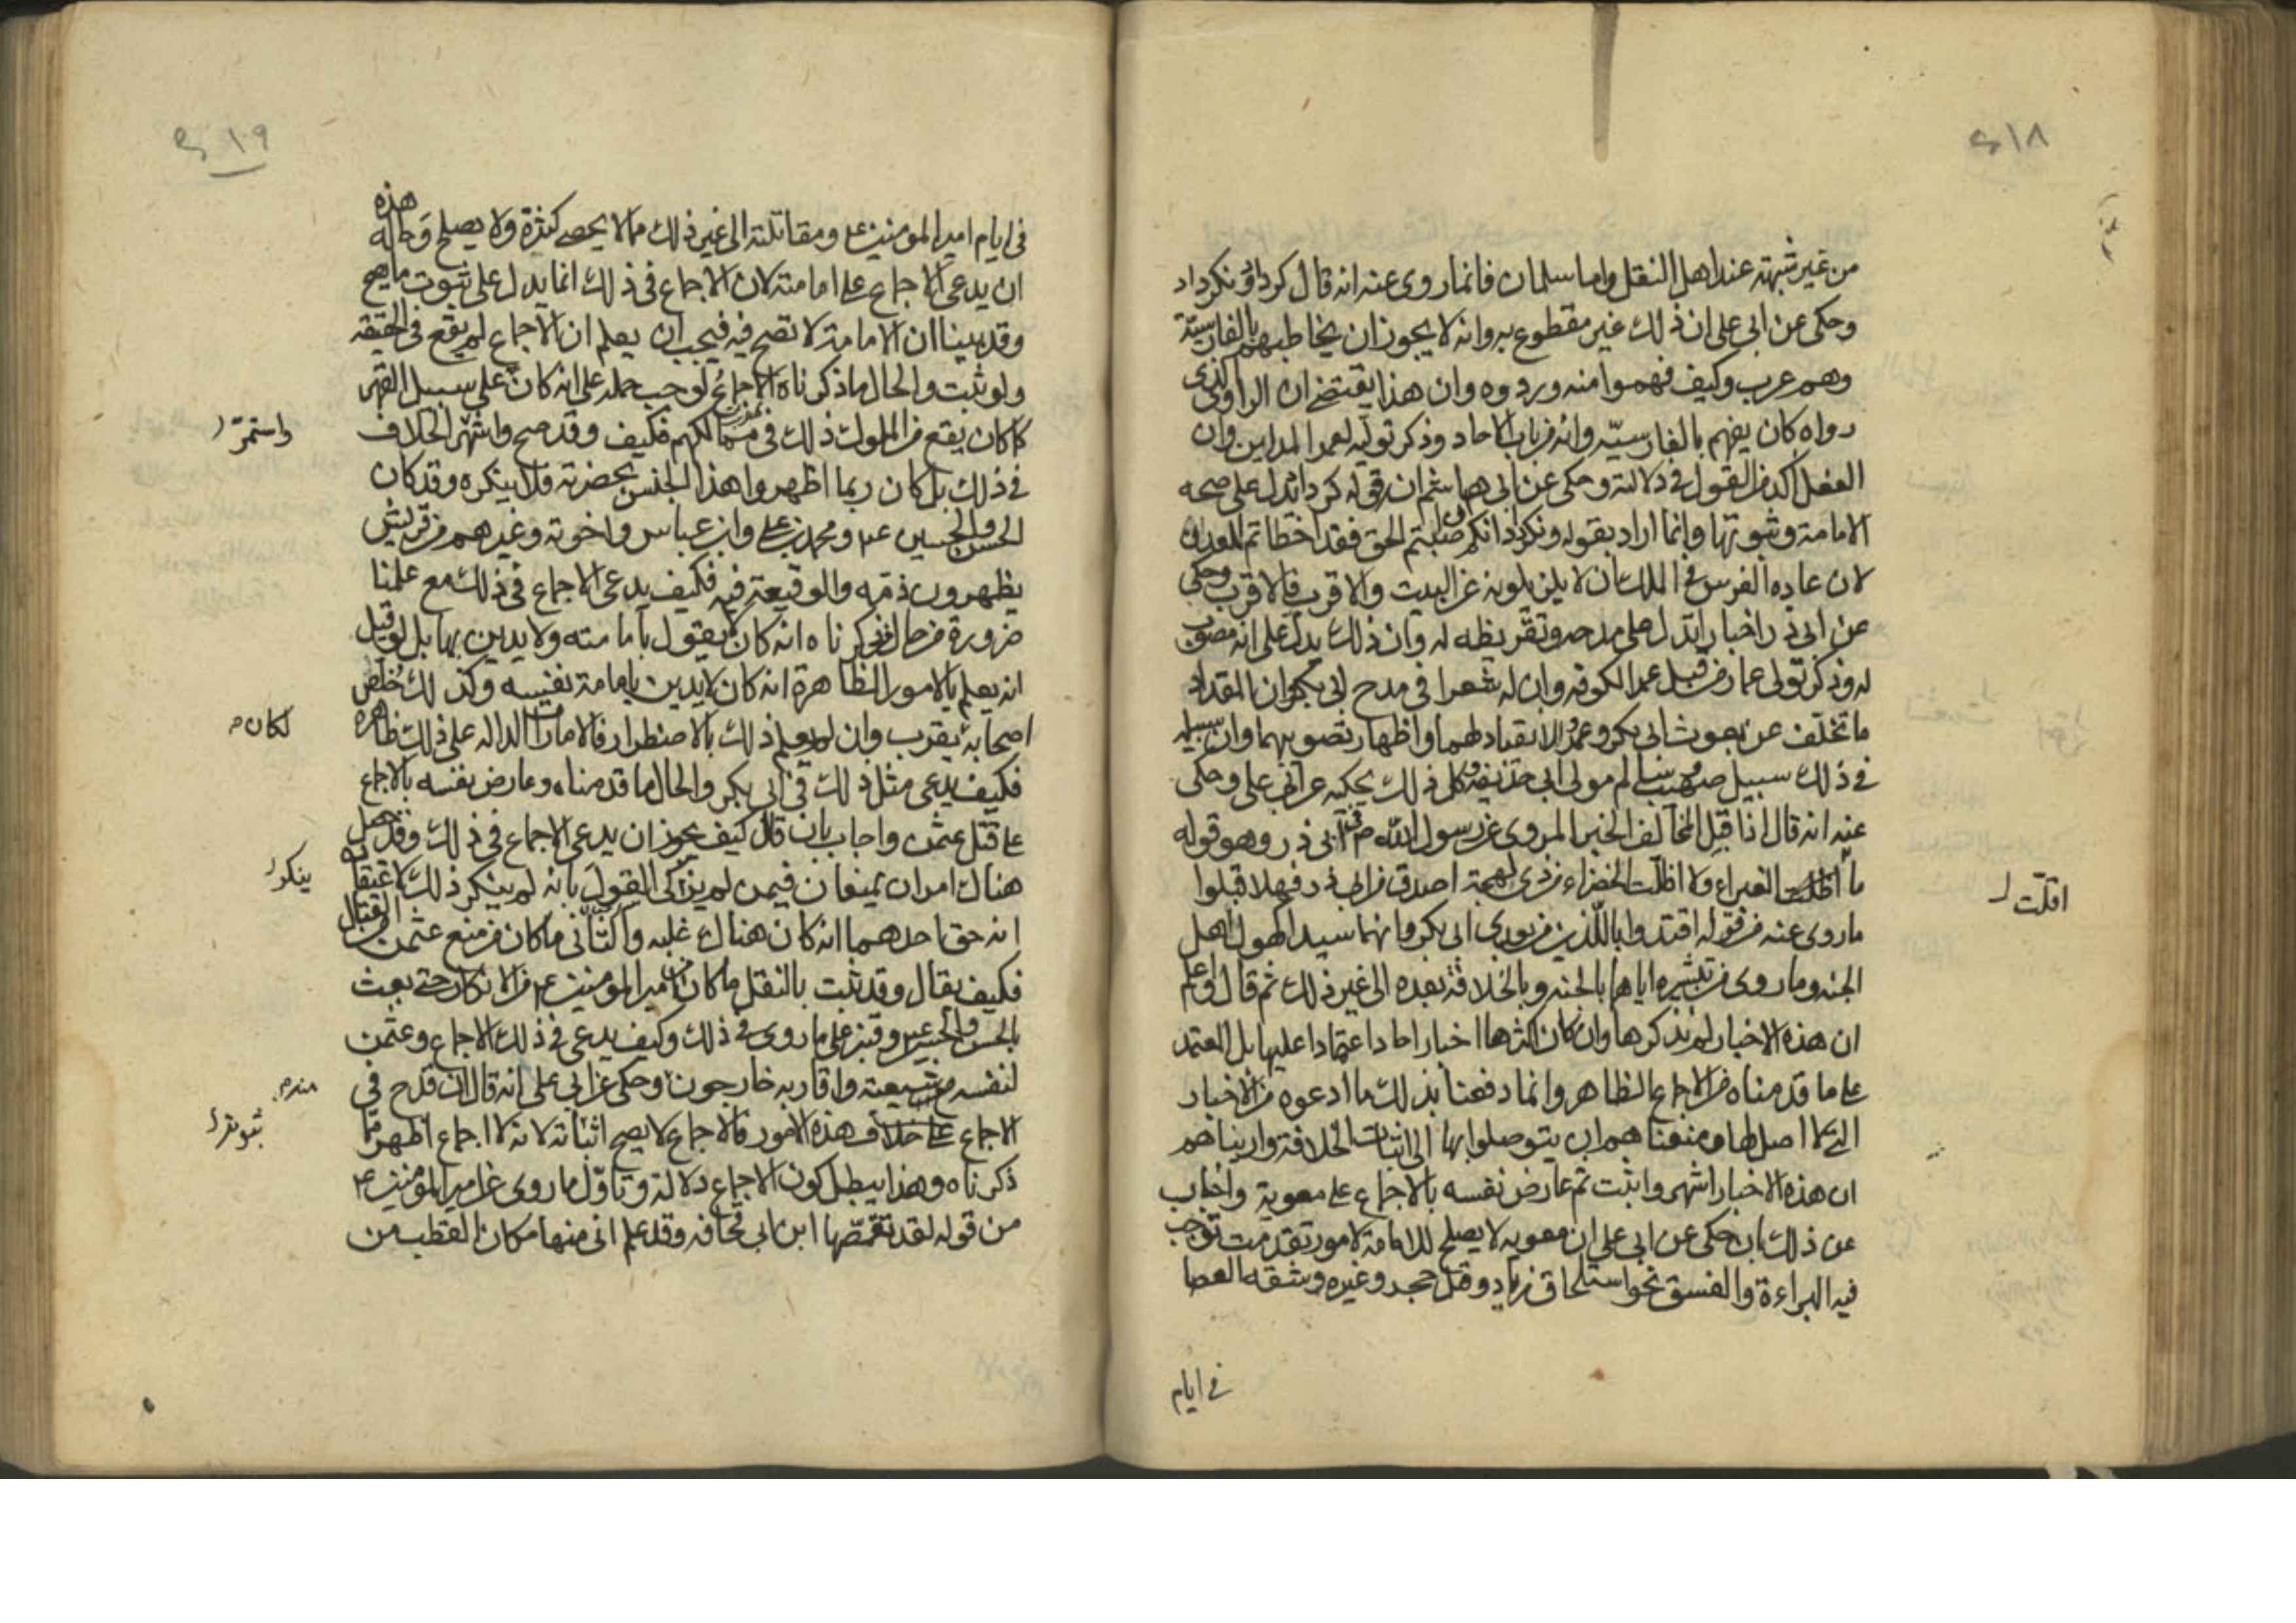 ١٨
من غير شبهة عند اهل النقل واما سلمان فانما روى عنه انه قال كرداد ونكرداد
وحكى عن ابى على ان ذلك غير مقطوع به وانه لا يجوز ان يخاطبهم بالفارسية
وهم عرب وكيف فهموا منه ورووه وان هذا يقتضى ان الراوى الذى
رواه كان يفهم بالفارسيّة وانه من باب الاحاد وذكر توليه لعمر المداين وان
الفعل اكد من القول فى دلالته وحكى عن ابى هاشم ان قوله كرداد يدل على صحه
الامامة وثبوتها وانما اراد بقوله ونكرداد انكم اصبتم الحق فقد اخطاتم المعدن
لان عاده الفرس فى الملك ان لا يزيلونه عن البيت والاقرب فالاقرب وحكى
عن ابى ذر اخبارا تدل على مدحه وتقريظه له وان ذلك يدل على انه مصوب
له وذكر تولى عمار من قبل عمر الكوفه وان له شعرا فى مدح ابى بكر وان المقداد
ما تخلف عن بعوث ابى بكر وعمر والانقياد لهما واظهار تصويبهما وان سبيله
فى ذلك سبيل صهيب وسالم مولى ابى حذيفه وكل ذلك يحكيه عن ابى على وحكى
عنه انه قال اذا قبل المخالف الخبر المروى عن رسول الله ص فى ابى ذر وهو قوله
ما اظلت الغبراء ولا اظلت الخضراء من ذى لهجة اصدق من ابى ذر فهلا قبلوا
اقلّت ل
ما روى عنه من قوله اقتدوا باللذين من بعدى ابى بكر وانهما سيدا كهول اهل
الجنه وما روى من تبشيره اياهما بالجنه وبالخلافة بعده الى غير ذلك ثم قال واعلم
ان هذه الاخبار لم نذكرها وان كان اكثرها اخبار احاد اعتمادا عليها بل المعتمد
على ما قدمناه من الاجماع الظاهر وانما دفعنا بذلك ما ادعوه من الاخبار
التى لا اصل لها ومنعناهم ان يتوصلوا بها الى اثبات الخلافة واريناهم
ان هذه الاخبار اشهر واثبت ثم عارض نفسه بالاجماع على معوية واجاب
عن ذلك بان حكى عن ابى على ان معويه لا يصلح للامامة لامور تقدمت توجب
فيه البراءة والفسق نحو استلحاق زياد وقتل حجر وغيره وشقه العصا
فى ايام
١٩
فى ايام امير المومنين ع ومقاتلته الى غير ذلك مما لا يحصى كثرة ولا يصلح وحاله هذه
ان يدعى الاجماع على امامته لان الاجماع فى ذلك انما يدل على ثبوت ما يصح
وقد بينا ان الامامة لا تصح فيه فيجب ان يعلم ان الاجماع لم يقع فى الحقيقه
ولو ثبت والحال ما ذكرناه الاجماع لوجب حمله على انه كان على سبيل القهر
كما كان يقع من الملوك ذلك فى ممالكهم فكيف وقد صح واشتهر الخلاف
واستمرّ ل
فى ذلك بل كان ربما اظهروا هذا الجنس بحضرته فلا ينكره وقد كان
الحسن والحسين ع ومحمد بن على وابن عباس واخوته وغيرهم من قريش
يظهرون ذمّه والوقيعة فيه فكيف يدعى الاجماع فى ذلك مع علمنا
ضرورة من حال من ذكرناه انه كان لا يقول بامامته ولا يدين بها بل لو قيل
انه يعلم بالامور الظاهرة انه كان لا يدين بامامة نفسه وكذلك خلّص
اصحابه لقرب وان لم يعلم ذلك بالاضطرار فالامارات الداله على ذلك ظاهره
لكان م
فكيف يدعى مثل ذلك فى ابى بكر والحال ما قدمناه وعارض نفسه بالاجماع
على قتل عثمن واجاب بان قال كيف يجوز ان يدعى الاجماع فى ذلك وقد حصل
هناك امران يمنعان فيمن لم يترك القول بانه لم ينكر ذلك لاعتقاده
ينكر ل
انه حق احدهما انه كان هناك غلبه والثانى ما كان من منع عثمن من القتال
فكيف يقال وقد ثبت بالنقل ما كان من امير المومنين ع من الانكار حتى بعث
بالحسن والحسين وقنبر على ما روى فى ذلك وكيف يدعى فى ذلك الاجماع وعثمن
لنفسه مع شيعته واقاربه خارجون وحكى عن ابى على انه قال ان قدح فى
منه م
الاجماع على خلاف هذه الامور فالاجماع لا يصح اثباته لانه لا اجماع اظهر مما
ثبوته ل
ذكرناه وهذا يبطل كون الاجماع دلالة وتاوّل ما روى عن امير المومنين ع
من قوله لقد تقمّصها ابن ابى قحافه وقد علم انى منها مكان القطب من